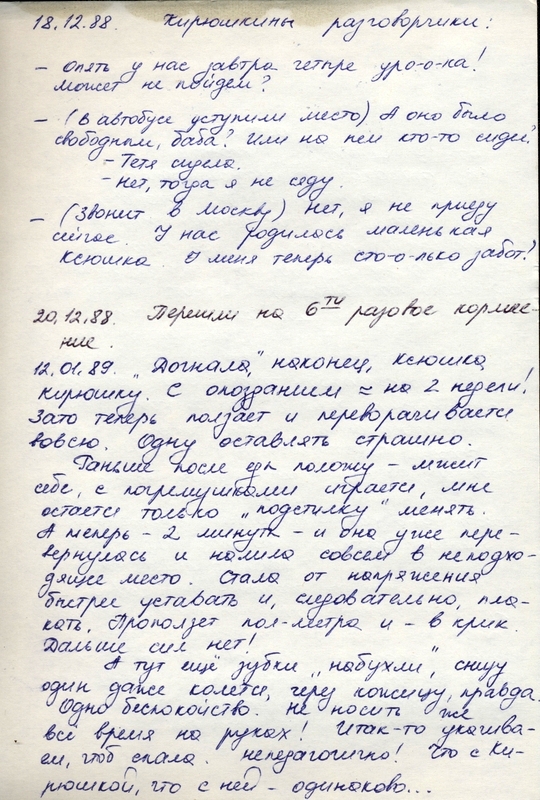 18.12.88. Кирюшкины разговорчики:
– опять у нас завтра четыре уро-о-ка!
может не пойдем?
– (В автобусе уступили место) А оно было
свободным, баба? Или на нем кто-то сидел?
– Тетя сидела.
– Нет, тогда я не сяду.
– (Звонит в Москву) Нет, я не приеду
сейчас. У нас родилась маленькая
Ксюшка. У меня теперь сто-о-лько забот!
20.12.88. Перешли на 6ти разовое кормле-
ние.
12.01.89. „Догнала", наконец, Ксюшка
Кирюшку. С опозданием ≈ на 2 недели!
Зато теперь ползает и переворачивается
вовсю. Одну оставлять страшно.
Раньше после еды положу – лежит
себе, с погремушками играется, мне
остается только „подстилку" менять.
А теперь – 2 минуты – и она уже пере-
вернулась и совсем в неподхо-
дящее место. Стала от напряжения
быстрее уставать и, следовательно, пла-
кать. Проползет пол-метра и – в крик.
Дальше сил нет!
А тут ещё зубки „набухли", снизу
один даже колется, через кожицу, правда.
Одно беспокойство. Не носить же
всё время на руках! Итак-то укачива-
ем, чтоб спала. Непедагогично! Что с Ки-
рюшкой, что с ней – одинаково...